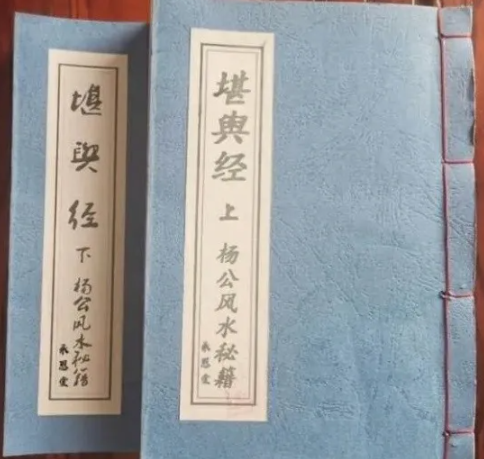 堪舆经
上
杨公风水秘籍
承恩堂
堪舆经
下
杨公风水秘籍
承恩堂